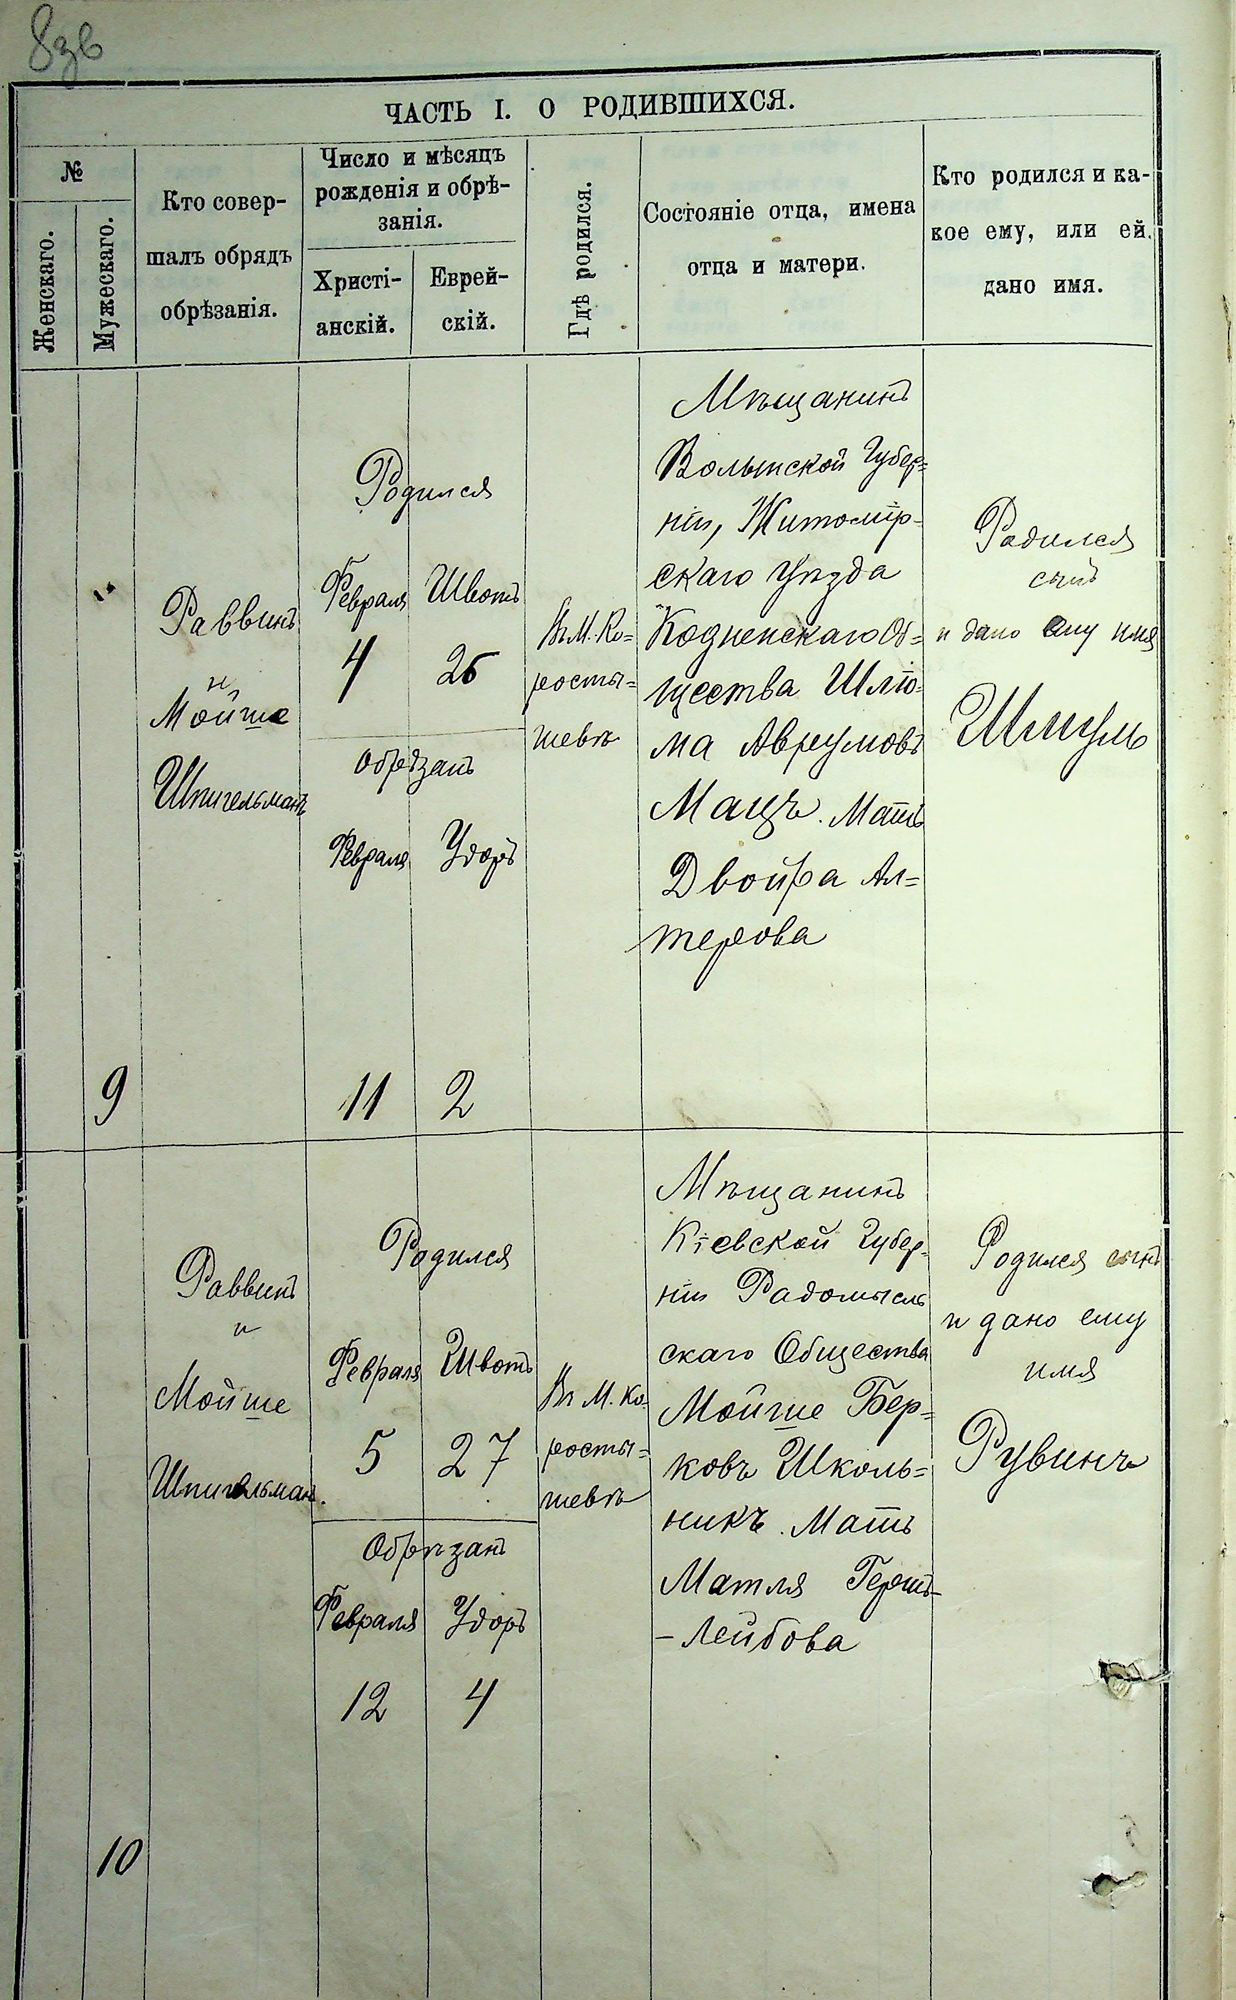 8зв
ЧАСТЬ I. О РОДИВШИХСЯ.
№
Женскаго.
Мужескаго.
Кто совер-
шалъ обрядъ
обрѣзанія.
Число и мѣсяцъ
рожденія и обрѣ-
занія.
Христі-
анскій.
Еврей-
скій.
Гдѣ родился.
Состояніе отца, имена
отца и матери.
Кто родился и ка-
кое ему, или ей.
дано имя.
9
Раввинъ
и
Мойше
Шпигельманъ
Родился
Февраля Швотъ
4 26
Обрѣзанъ
Февраля Удоръ
11 2
Въ М. Ко=
росты=
шевѣ
Мѣщанинъ
Волынской Губер=
ніи, Житомір-
скаго Уѣзда
Кодненскаго Об=
щества Шлio-
ма Аврумовъ
Мацъ. Мать
Двойра Ал=
терова
Родился
сынъ
и дано ему имя
Шмуль
10
Раввинъ
и
Мойше
Шпигельман.
Родился
Февраля Швотъ
5 27
Обрѣзанъ
Февраля Удоръ
12 4
Въ М. Ко-
росты=
шевѣ
Мѣщанинъ
Кіевской Губер-
ніи Радомысль
скаго Общества
Мойше Бер=
ковъ Школь=
никъ. Мать
Матля Гершъ-
-Лейбова
Родился сынъ
и дано ему
имя
Рувинъ